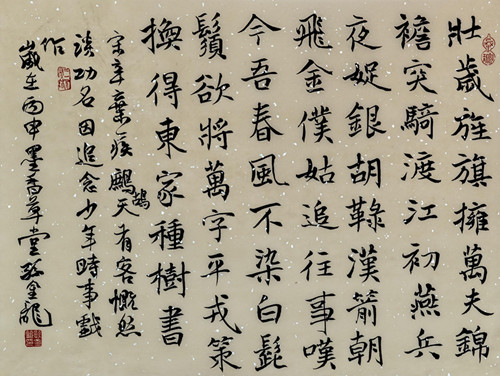 壯歲旌旗擁萬夫錦
襜突騎渡江初燕兵
夜娖銀胡䩮漢箭朝
飛金僕姑追往事嘆
今吾春風不染白髭
鬚欲將萬字平戎策
換得東家種樹書
宋辛棄疾鷓鴣天有客慨然
談功名因追念少年時事戲
作
歲在丙申墨香草堂金龍